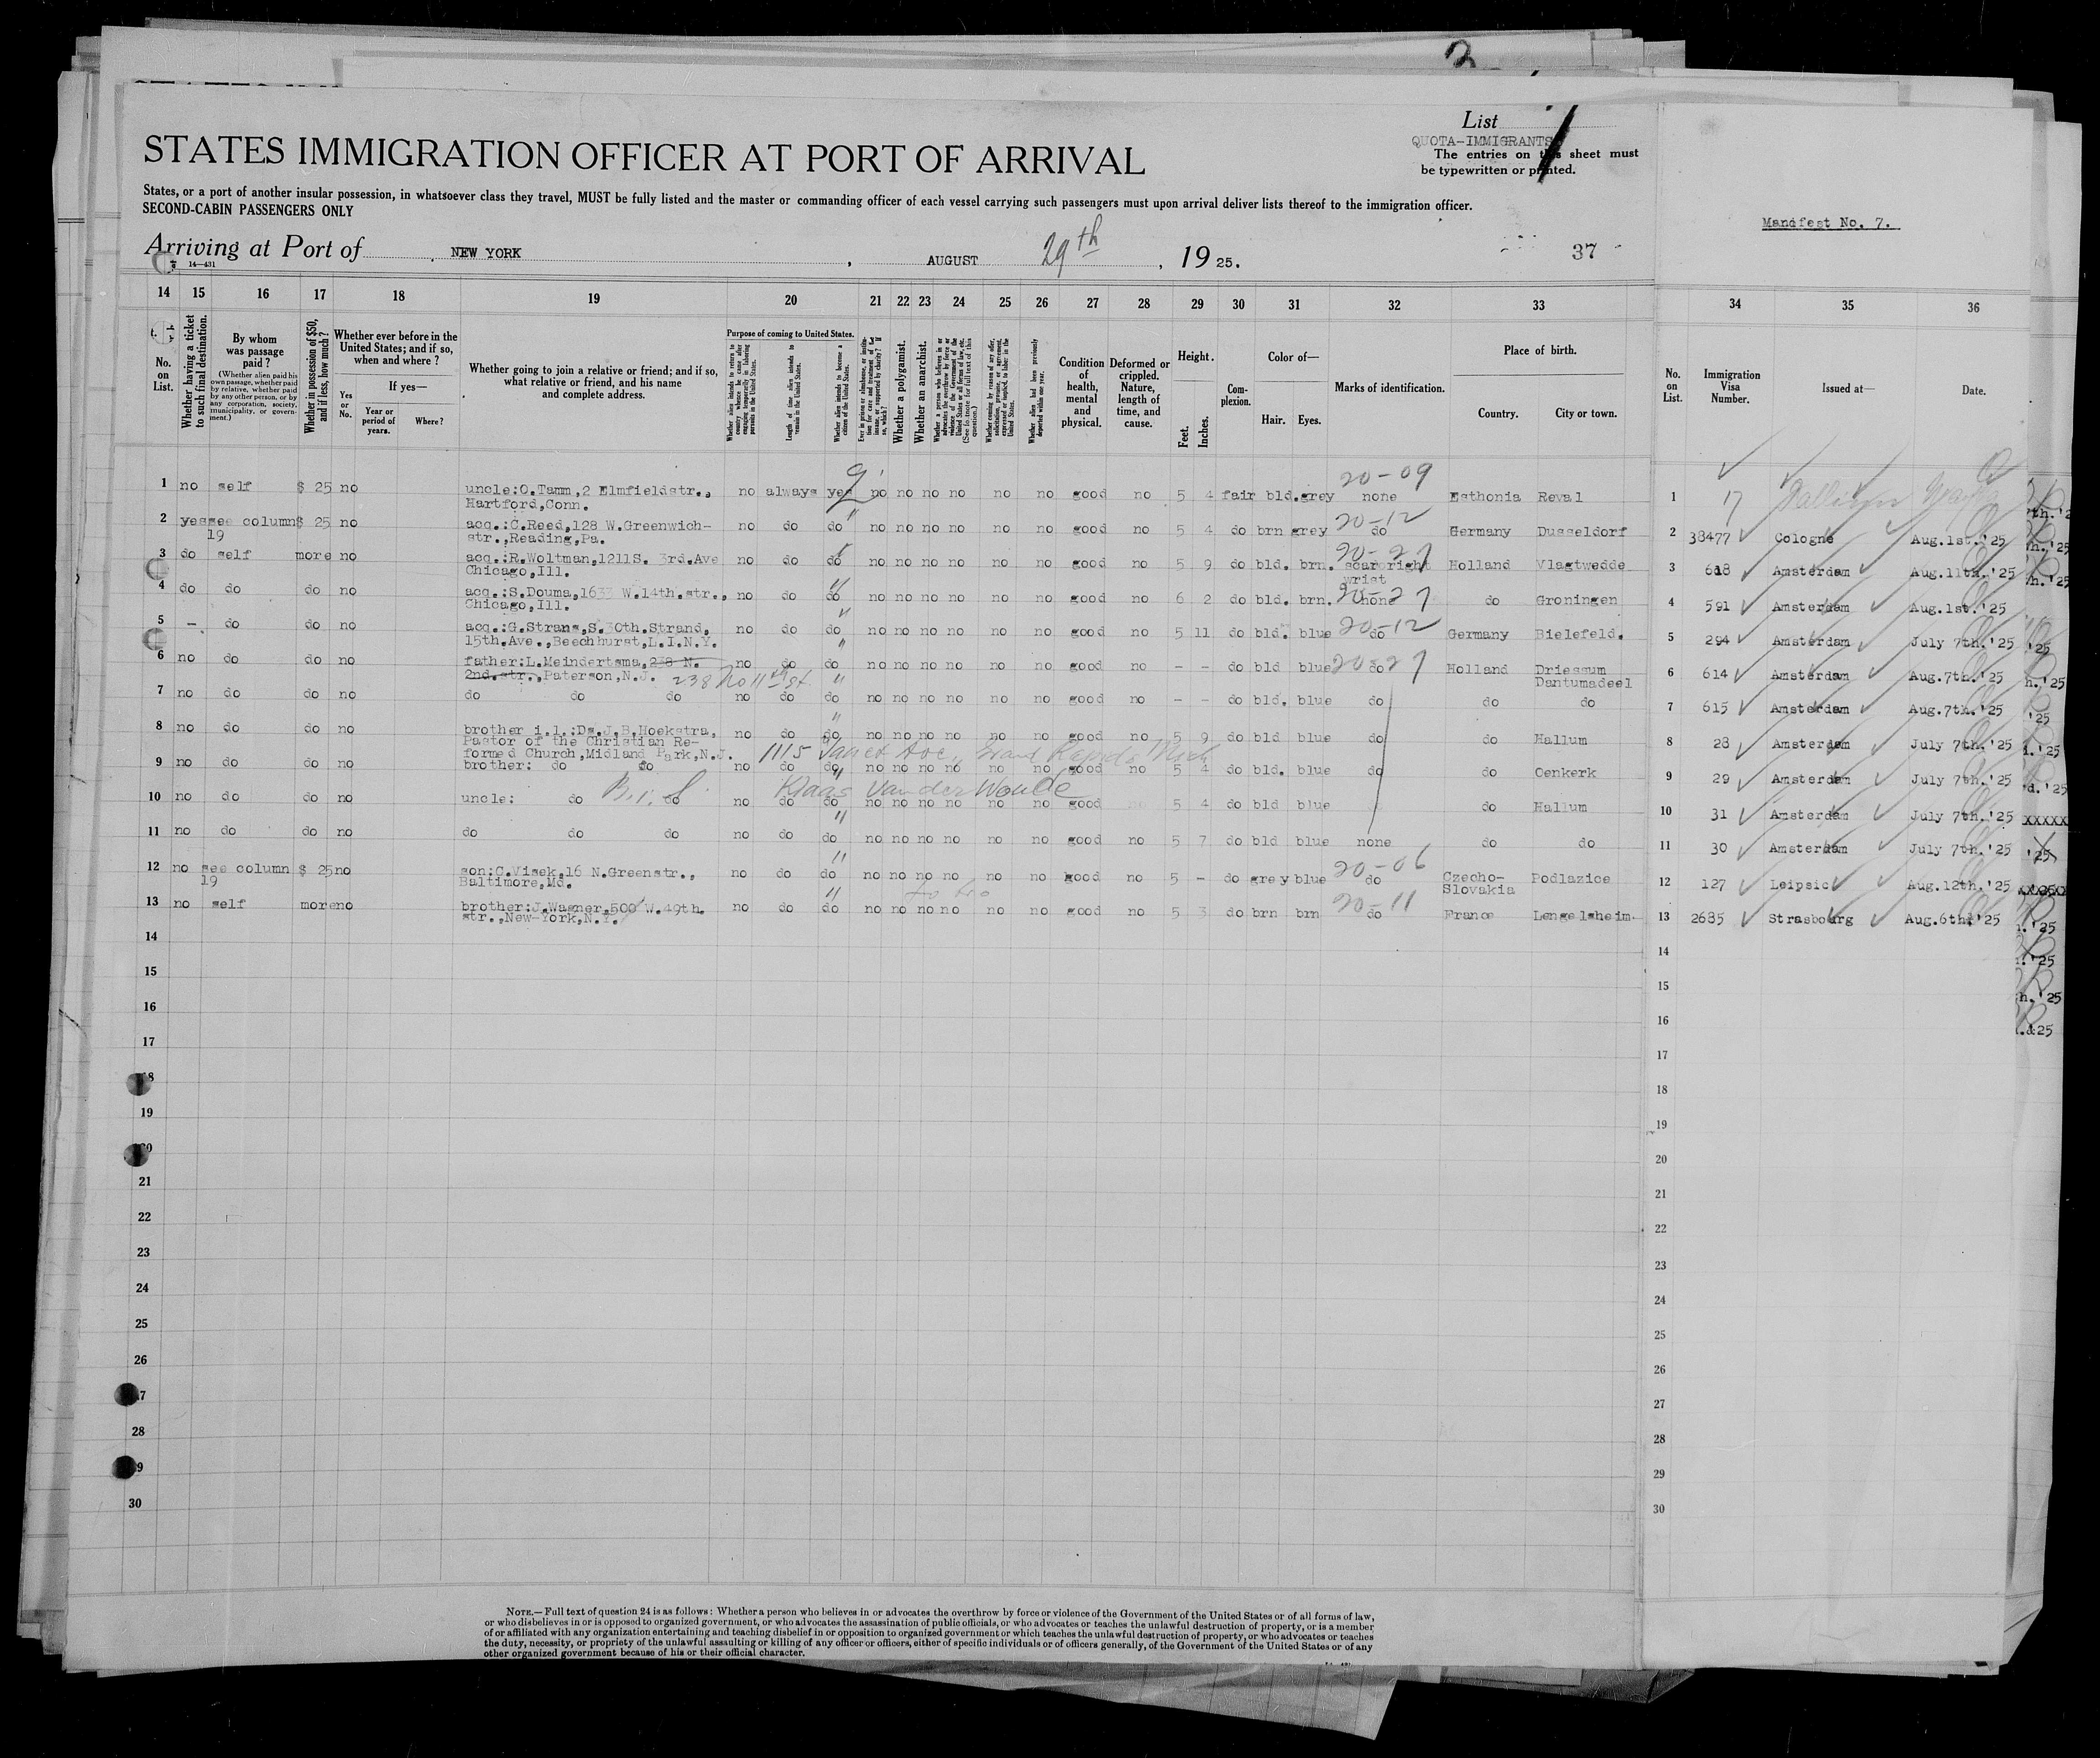 List
QUOTA-IMMIGRANTS
STATES IMMIGRATION OFFICER AT PORT OF ARRIVAL
The entries on this sheet must
be typewritten or printed.
States, or a port of another insular possession, in whatsoever class they travel, MUST be fully listed and the master or commanding officer of each vessel carrying such passengers must upon arrival deliver lists thereof to the immigration officer.
SECOND-CABIN PASSENGERS ONLY
Manifest No. 7.
Arriving at Port of NEW YORK , AUGUST 29th , 19 25. 37
14—431
14 15 16 17 18 19 20 21 22 23 24 25 26 27 28 29 30 31 32 33 34 35 36
No. on List.
Whether having a ticket to such final destination.
By whom was passage paid?
(Whether alien paid his own passage, whether paid by relative, whether paid by any other person, or by any corporation, society, municipality, or government.)
Whether in possession of $50, and if less, how much?
Whether ever before in the United States; and if so, when and where?
Yes or No.
If yes—
Year or period of years.
Where?
Whether going to join a relative or friend; and if so, what relative or friend, and his name and complete address.
Purpose of coming to United States.
Whether alien intends to return to country whence he came after engaging temporarily in laboring pursuits in the United States.
Length of time alien intends to remain in the United States.
Whether alien intends to become a citizen of the United States.
Whether a polygamist.
Whether an anarchist.
Whether alien had been previously deported within one year.
Condition of health, mental and physical.
Deformed or crippled. Nature, length of time, and cause.
Height.
Feet. Inches.
Complexion.
Color of—
Hair. Eyes.
Marks of identification.
Place of birth.
Country. City or town.
No. on List.
Immigration Visa Number.
Issued at—
Date.
1 no self $ 25 no uncle:O.Tamm,2 Elmfieldstr., no always yes no no no no no no good no 5 4 fair bld.grey 20-09 none Esthonia Reval 1 17
Hartford,Conn.
2 yes see column $ 25 no acq.:C.Reed,128 W.Greenwich- no do do no no no no no no good no 5 4 do brn grey 20-12 do Germany Dusseldorf 2 38477 Cologne Aug.1st.'25
19 str.,Reading,Pa.
3 do self more no acq.:R.Woltman,1211S. 3rd.Ave no do do no no no no no no good no 5 9 do bld. brn. 20-27 scar right Holland Vlagtwedde 3 618 Amsterdam Aug.11th.'25
Chicago,Ill. wrist
4 do do do no acq.:S.Douma,1633 W.14th.str., no do do no no no no no no good no 6 2 do bld. brn. 20-27 none do Groningen 4 591 Amsterdam Aug.1st.'25
Chicago,Ill.
5 - do do no acq.:G.Strang,S. 30th.Strand, no do do no no no no no no good no 5 11 do bld. blue 20-12 do Germany Bielefeld. 5 294 Amsterdam July 7th.'25
15th.Ave.,Beechhurst,L.I.N.Y.
6 no do do no father:L.Meindertsma,238 N. no do do no no no no no no good no - - do bld blue 20-27 do Holland Driesum 6 614 Amsterdam Aug.7th.'25
2nd.str.,Paterson,N.J. 238 No 11th St. Dantumadeel
7 no do do no do do do no do do no no no no no no good no - - do bld. blue do do do 7 615 Amsterdam Aug.7th.'25
8 no do do no brother i.l.:Ds.J.B.Hoekstra, no do do no no no no no no good no 5 9 do bld blue do do Hallum 8 28 Amsterdam July 7th.'25
Pastor of the Christian Re-
formed Church,Midland Park,N.J. 1115 Ave., Grand Rapids Mich
9 no do do no brother: do do no do do no no no no no no good no 5 4 do bld. blue do do Oenkerk 9 29 Amsterdam July 7th.'25
B.i.l. Klaas Van der Woude
10 no do do no uncle: do do no do do no no no no no no good 5 4 do bld blue do Hallum 10 31 Amsterdam July 7th.'25
11 no do do no do do do no do do no no no no no no good no 5 7 do bld blue none do do 11 30 Amsterdam July 7th.'25
12 no see column $ 25 no son:C.Visek,16 N.Greenstr., no do do no no no no no no good no 5 - do grey blue 20-06 do Czecho- Podlazice 12 127 Leipsic Aug.12th.'25
19 Baltimore,Md. Slovakia
13 no self more no brother:J.Wagner,500 W.49th. no do do no no no no no no good no 5 do brn brn 20-11 do France Lengelsheim 13 2685 Strasbourg Aug.6th.'25
str.,New-York,N.Y.
14 14
15 15
16 16
17 17
18 18
19 19
20 20
21 21
22 22
23 23
24 24
25 25
26 26
27 27
28 28
29 29
30 30
NOTE.—Full text of question 24 is as follows: Whether a person who believes in or advocates the overthrow by force or violence of the Government of the United States or of all forms of law,
or who disbelieves in or is opposed to organized government, or who advocates the assassination of public officials, or who advocates or teaches the unlawful destruction of property, or is a member
of or affiliated with any organization entertaining and teaching disbelief in or opposition to organized government or which teaches the unlawful destruction of property, or who advocates or teaches
the duty, necessity, or propriety of the unlawful assaulting or killing of any officer or officers, either of specific individuals or of officers generally, of the Government of the United States or of any
other organized government because of his or their official character.